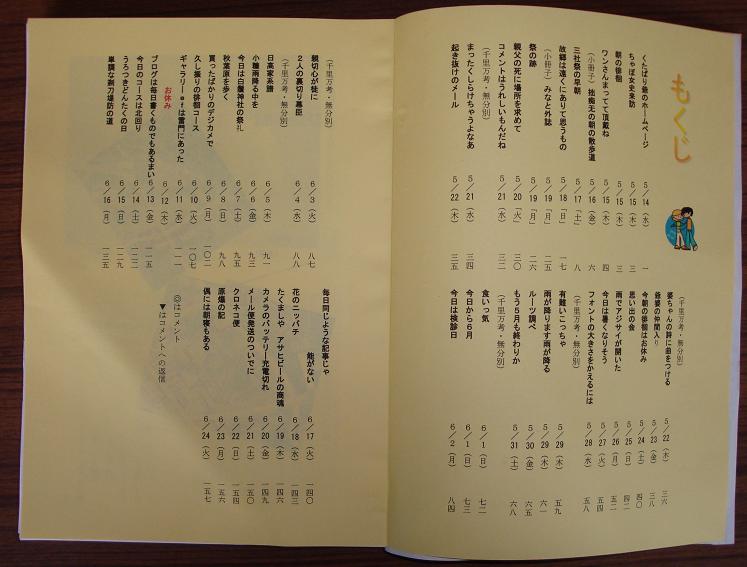 もくじ
くたばり爺のホームページ 5/14(水) 一
ちゃぼ女史来訪 5/15(木) 三
朝の徘徊 5/15(木) 三
ワンさんまってて頂戴ね 5/15(木) 四
(小冊子) 拙痴无の朝の散歩道 5/16(金) 六
三社祭の早朝 5/17「土」 八
故郷は遠くにありて思うもの 5/18「日」 一七
(小冊子) みなと外誌 5/19「月」
祭の跡 5/19「月」 二六
親父の死に場所を求めて 5/20「火」 三〇
コメントはうれしいもんだね 5/21(水) 三一
(千里万考・無分別)
まったくしらけちゃうよなあ 5/21(水) 三四
起き抜けのメール 5/22(木) 三五
(千里万考・無分別)
婆ちゃんの絆に曲をつける 5/22(木) 三六
爺婆の仲間入り 5/23(金) 三八
今朝の徘徊はお休み 5/24(土) 四〇
思い出の会 5/25(日) 四二
雨でアジサイが開いた 5/26(月) 五二
今日は暑くなりそう 5/27(火) 五四
フォントの大きさをかえるには 5/28(水) 五八
(千里万考・無分別)
有難いこっちゃ 5/29(木) 五九
雨が降ります雨が降る 5/29(木) 六一
ルーツ調べ 5/30(金) 六五
もう5月も終わりか 5/31(土) 六八
(千里万考・無分別)
食いっ気 6/1(日) 七二
今日から6月 6/1(日) 七三
今日は検診日 6/2(月) 八四
(千里万考・無分別)
親切心が徒に 6/3(火) 八七
2人の裏切り幕臣 6/4(水) 八八
(千里万考・無分別)
日高家系譜 6/5(木) 九一
小糠雨降る中を 6/6(金) 九三
今日は白鬚神社の祭礼 6/7(土) 九五
秋葉原を歩く 6/8(日) 九八
買ったばかりのデジカメで 6/9(月) 一〇二
久し振りの徘徊コース 6/10(火) 一〇七
ギャラリーefは雷門にあった 6/11(水) 一一一
お休み 6/12(木)
ブログは毎日書くものでもあるまい 6/13(金) 一一五
今日のコースは北回り 6/14(土) 一二二
うろつきどんたくの日 6/15(日) 一二九
単調な剃刀堤防の道 6/16(月) 一三五
毎日同じような記事じゃ
能がない 6/17(火) 一四〇
花のニッパチ 6/18(水) 一四三
たくましや アサヒビールの商魂 6/19(木) 一四六
カメラのバッテリー充電切れ 6/20(金) 一四九
メール便発送のついでに 6/21(土) 一五〇
クロネコ便 6/22(日) 一五四
原爆の記 6/23(月) 一五六
偶には朝寝もある 6/24(火) 一五七
◎はコメント
▼はコメントへの返信